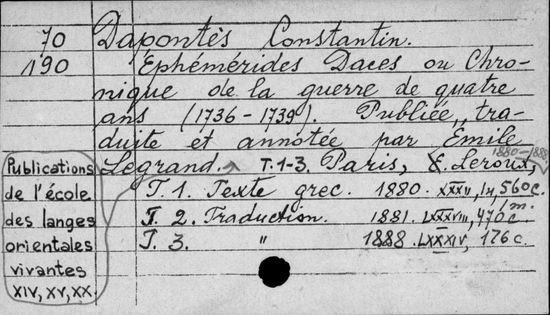 70 Dapontès Constantin.
190 Éphémérides Daces ou Chro-
nique de la guerre de quatre
ans (1736-1739). Publiée, tra-
duite et annotée par Emile
Legrand. T.1-3. Paris, E. Leroux, 1880-1888
T. 1. Texte grec. 1880. XXXV, 560 c.
T. 2. Traduction. 1881. LXXXVIII, 470 c.
T. 3. " 1888. LXXXIV, 176 c.
Publications
de l'école
des langes
orientales
vivantes
XIV, XV, XX.